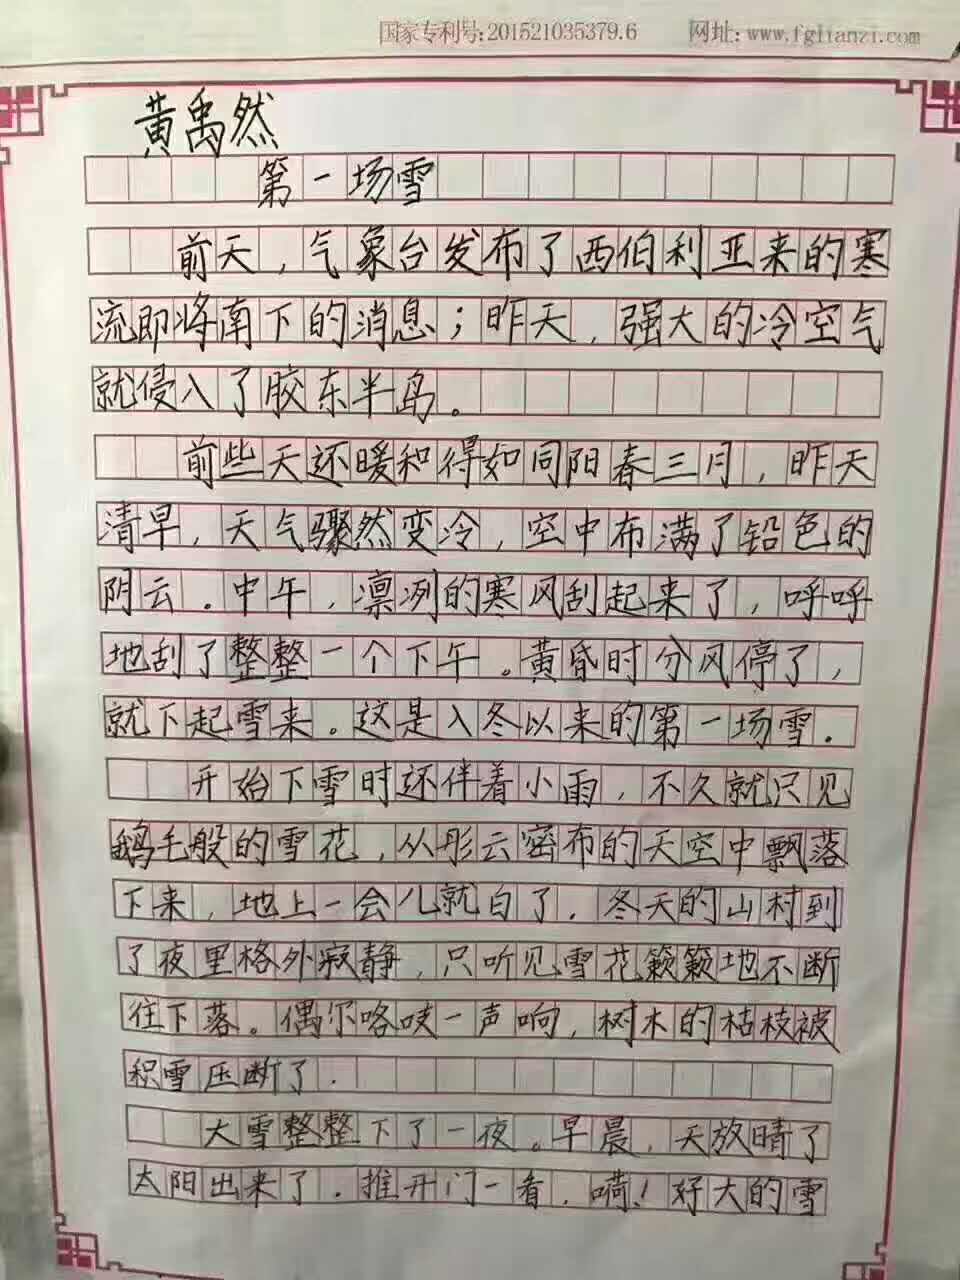 国家专利号:201521035379.6 网址: www.fglianzi.com
黄禹然
第一场雪
前天，气象台发布了西伯利亚来的寒
流即将南下的消息；昨天，强大的冷空气
就侵入了胶东半岛。
前些天还暖和得如同阳春三月，昨天
清早，天气骤然变冷，空中布满了铅色的
阴云。中午，凛冽的寒风刮起来了，呼呼
地刮了整整一个下午。黄昏时分风停了，
就下起雪来。这是入冬以来的第一场雪.
开始下雪时还伴着小雨，不久就只见
鹅毛般的雪花，从彤云密布的天空中飘落
下来，地上一会儿就白了.冬天的山村到
了夜里格外寂静，只听见雪花簌簌地不断
往下落。偶尔咯吱一声响，树木的枯枝被
积雪压断了.
大雪整整下了一夜。早晨，天放晴了
太阳出来了.推开门一看，嗬！好大的雪